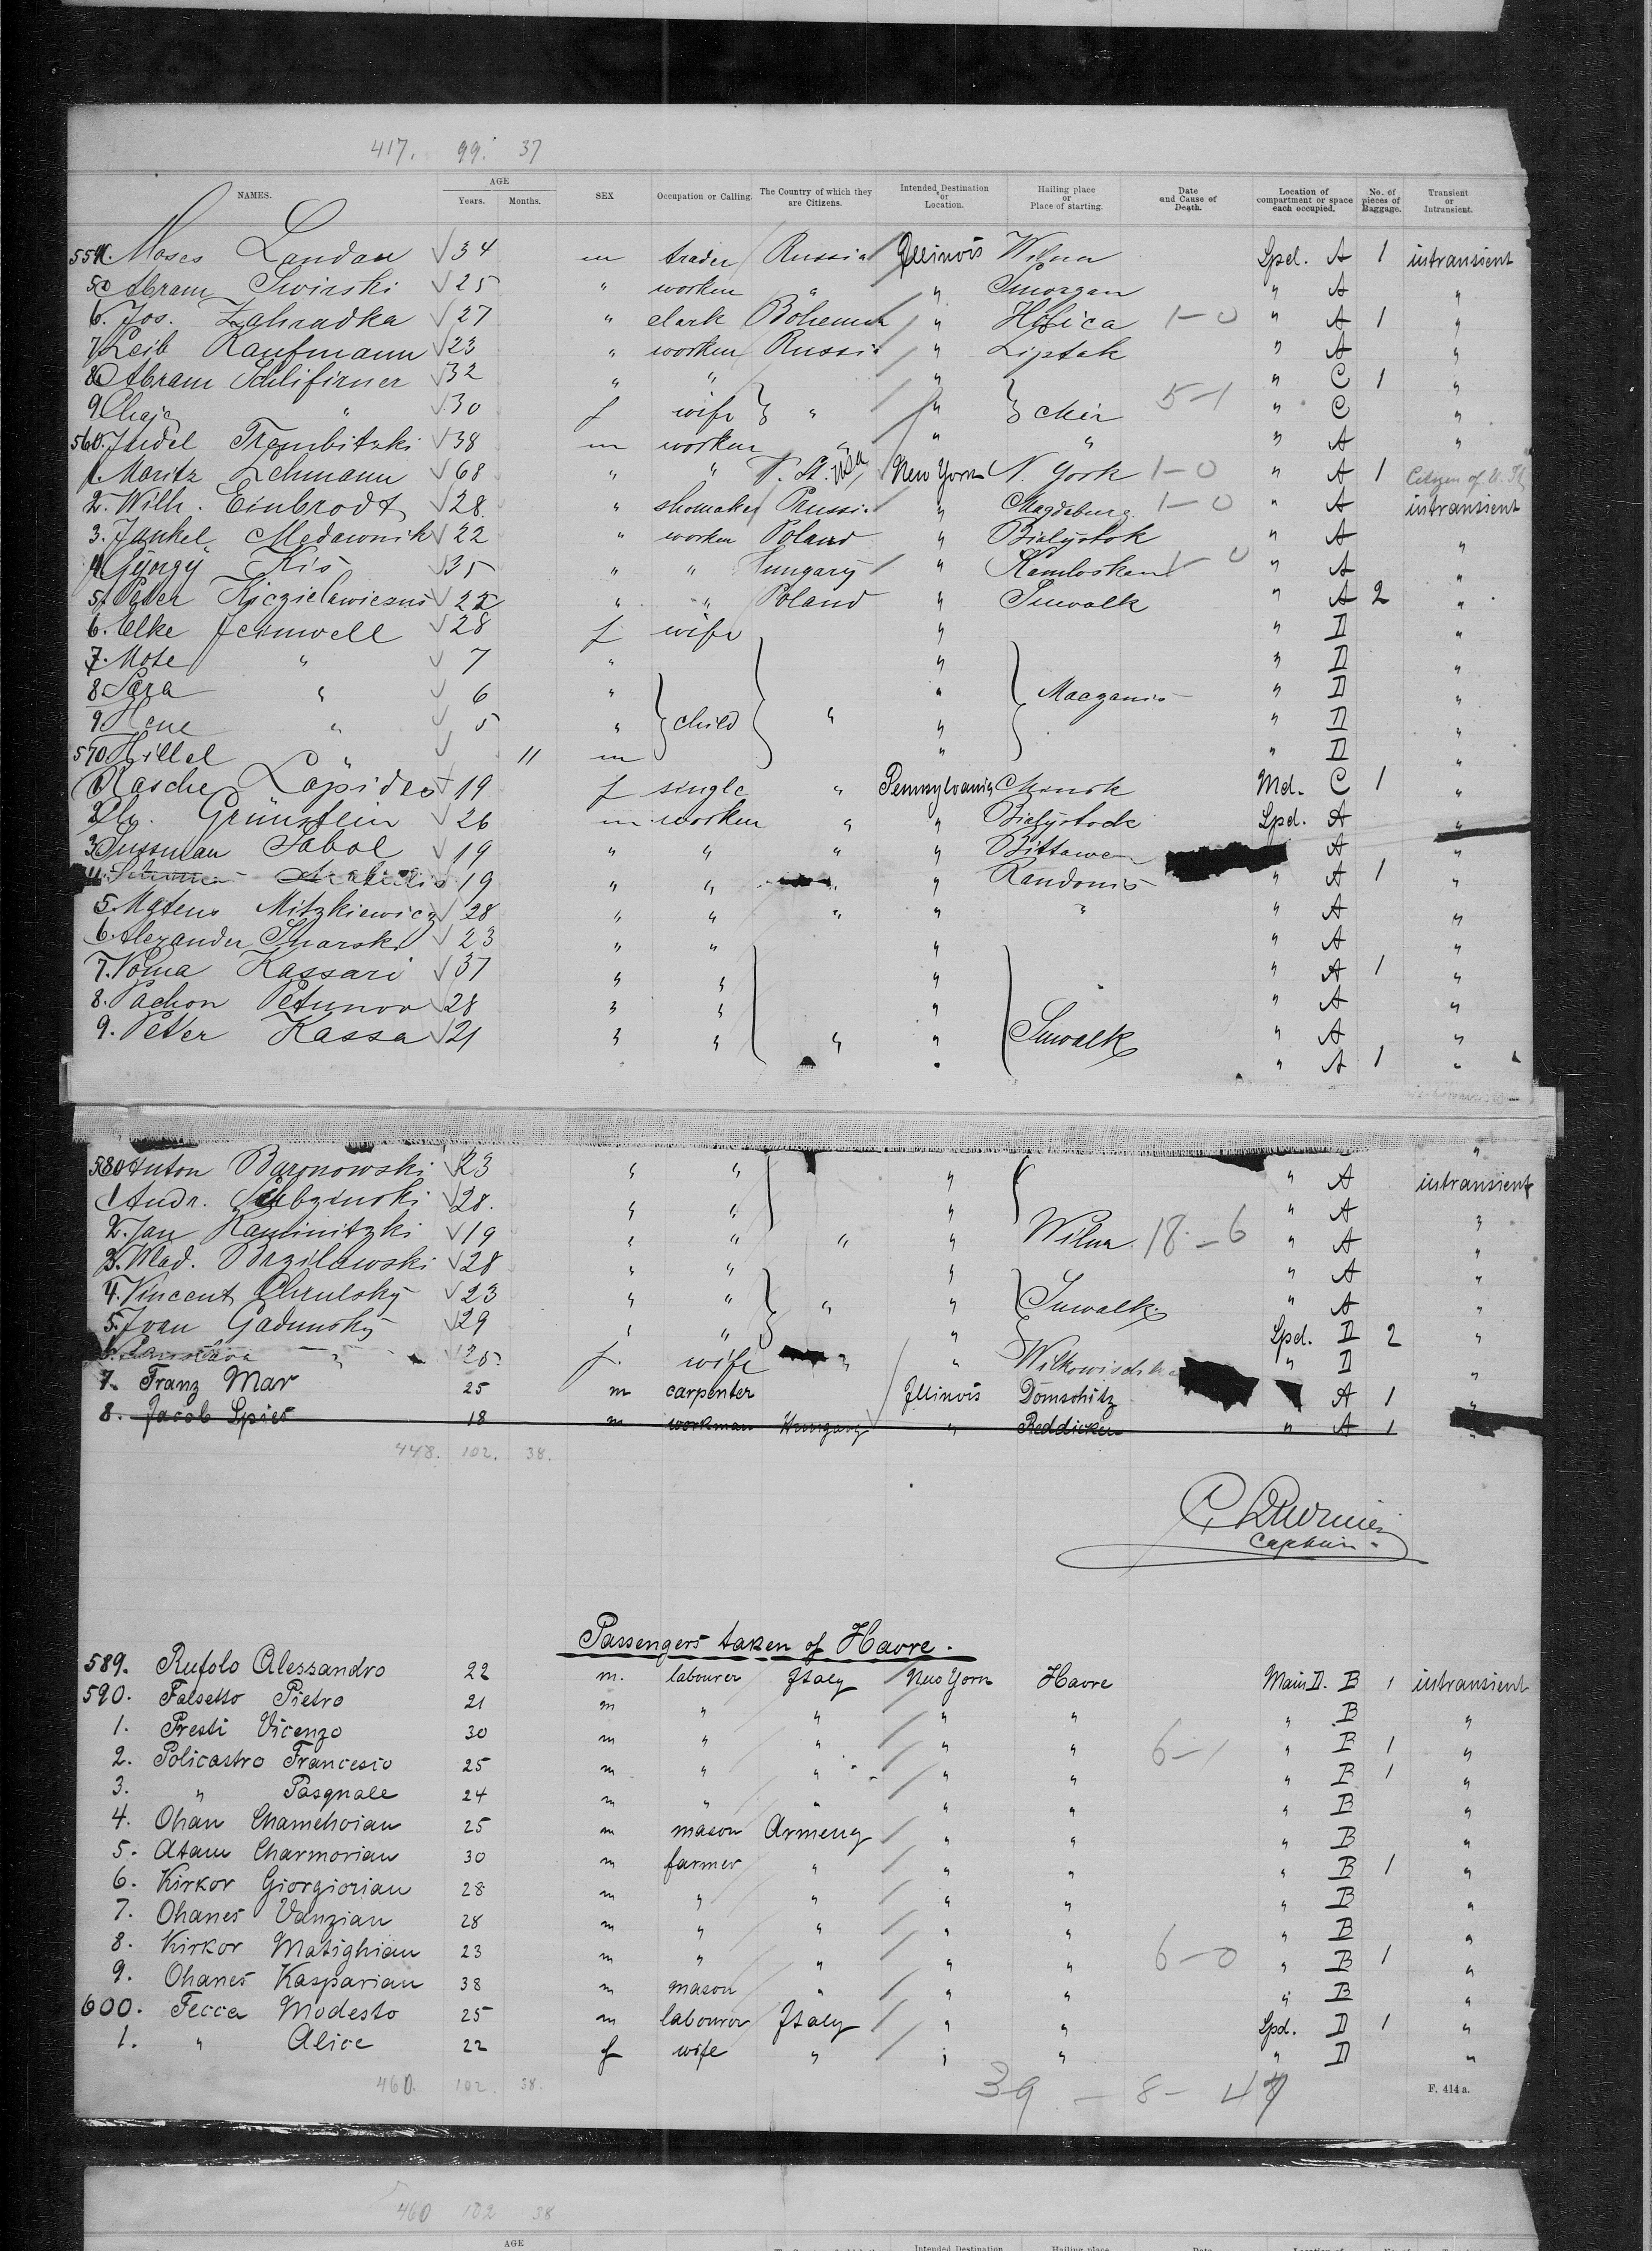 417. 99. 37
NAMES. AGE Years. Months. SEX Occupation or Calling. The Country of which they are Citizens. Intended Destination or Location. Hailing place or Place of starting. Date and Cause of Death. Location of compartment or space each occupied. No. of pieces of Baggage. Transient or Intransient.
Moses Landau √ 34 m trader Russia Illinois Wilna Spd. A 1 intransient
Abram Swirski √ 25 " worker " " Smorgan " A "
6. Jos. Zahradka √ 27 " clark Bohemia " Hosica 1-0 " A 1 "
7 Leib Kaufmann √ 23 " worker Russia " Liptak " A "
8 Abram Schlifirner √ 32 " " " " C 1 "
9 Chaje " √ 30 f wife " " Mir 5-1 " C "
560. Judel Trembitzki √ 38 m worker " " " " A "
1. Moritz Lehmann √ 68 " " U.St. USA New York N. York 1-0 " A 1 Citizen of U. St.
2. Wilh. Einbrodt √ 28 " shomaker Prussia " Magdeburg 1-0 " A intransient
3. Jankel Medawnik √ 22 " worker Poland " Bialystok " A "
4. György Kis √ 35 " " Hungary " 1-0 " A "
5. Peter √ 22 " " Poland " Suwalk " A 2 "
6. Elke √ 28 f wife " " D "
7. Mote " √ 7 " " " D "
8. Sara " √ 6 " " " D "
9. Hene " √ 5 " child " " " D "
570 Hillel " √ 11 m " " D "
1 Rasche Lapides 19 f single " Pennsylvania Minsk Md. C 1 "
2 Grünstein √ 26 m worker " " Bialystock Spd. A "
3 Sussman Sabol √ 19 " " " " A "
4. 19 " " " " Randonis " A 1 "
5. Mateus Mitzkiewicz √ 28 " " " " " " A "
6. Alexander √ 23 " " " " A "
7. Kassari √ 37 " " " " A 1 "
8. Petunov √ 28 " " " " A "
9. Peter Kassa √ 21 " " " " Suwalk " A "
" A 1 "
580 Anton Baronowski √ 23 " " " " A intransient
1 Andr. √ 28. " " " " A "
2. Jan Kaminitzki √ 19 " " " " Wilna 18-6 " A "
3. Wlad. Brzilawski √ 28 " " " " A "
4. Vincent √ 23 " " " " Suwalk " A "
5. Ivan Gadunsky √ 29 " " " Spd. D 2 "
6. " √ 25 f. wife " " " D "
7. Franz Mar 25 m carpenter Illinois Domschitz A 1 "
8. Jacob Spies 18 m workman Hungary " " A 1 "
448. 102. 38.
Captain.
Passengers taken of Havre.
589. Rufolo Alessandro 22 m. labourer Italy New York Havre Main D. B 1 intransient
590. Falsetto Pietro 21 m " " " " " B "
1. Presti Vicenzo 30 m " " " " 6-1 " B 1 "
2. Policastro Francesco 25 m " " " " " B 1 "
3. " Pasquale 24 m " " " " " B "
4. Ohan Chamehoian 25 m mason Armeny " " " B "
5. Atam Charmorian 30 m farmer " " " " B 1 "
6. Kirkor Giorgiorian 28 m " " " " " B "
7. Ohanes Vanzian 28 m " " " " " B "
8. Kirkor Matighian 23 m " " " " 6-0 " B 1 "
9. Ohanes Kasparian 38 m mason " " " " B "
600. Fecca Modesto 25 m labourer Italy " " Spd. D 1 "
1. " Alice 22 f wife " " " " D "
460. 102. 38. 39 - 8 - 47 F. 414 a.
460 102 38
AGE
Intended Destination Hailing place Date Location of No. of Transient